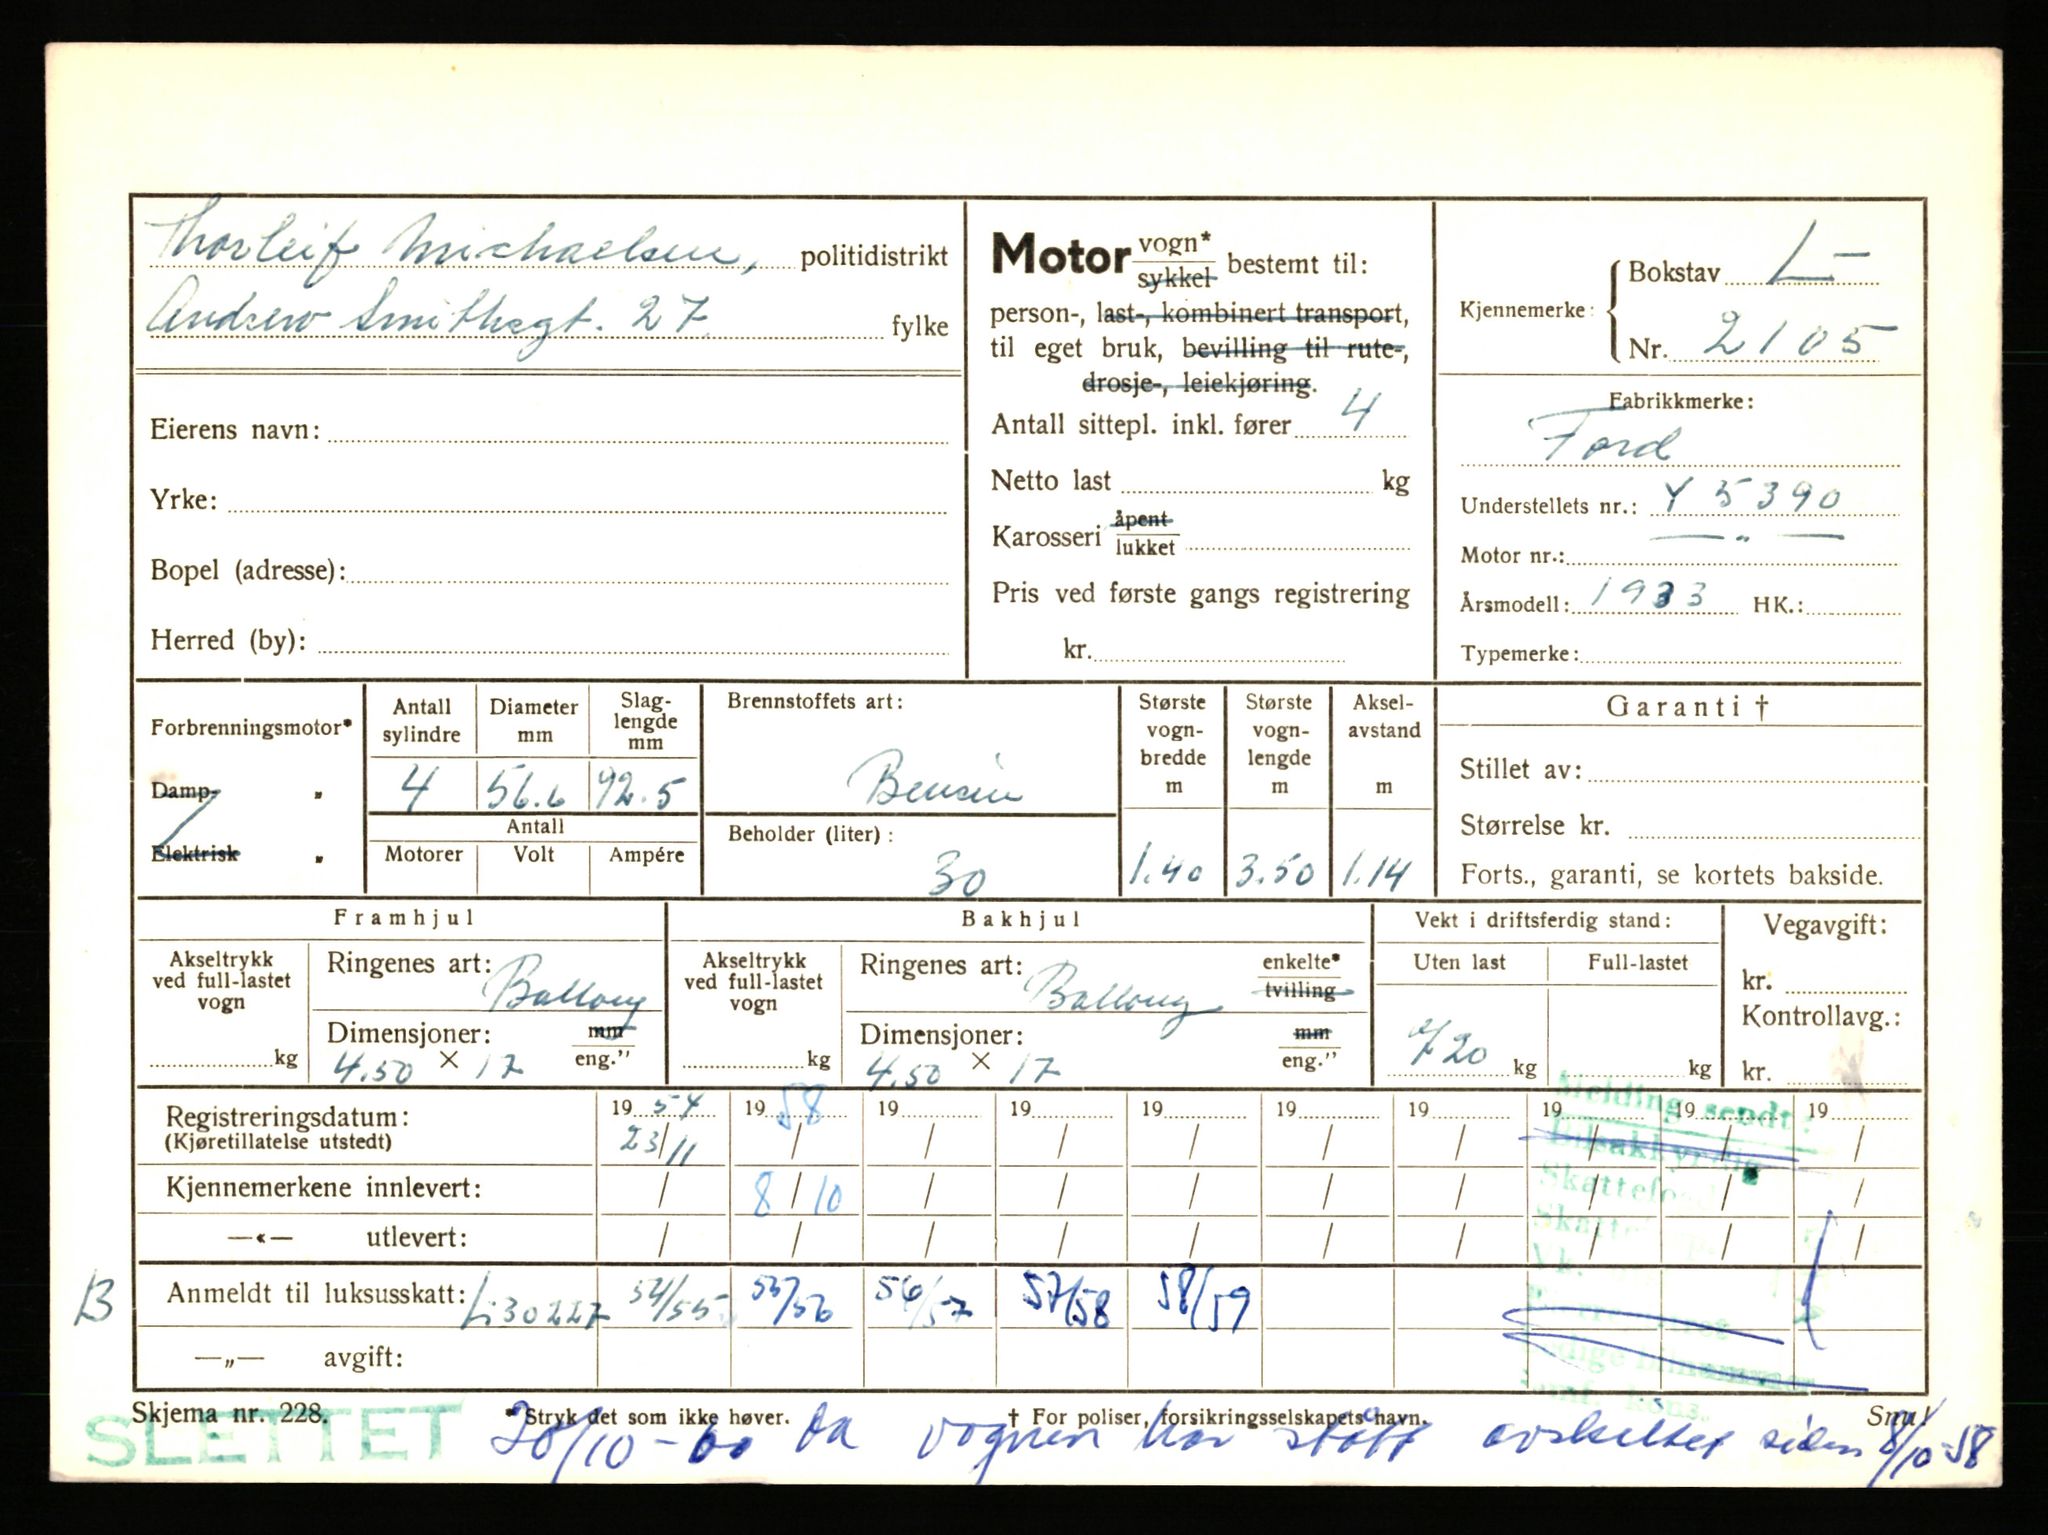 Thorleif Michaelsen, politidistrikt
Andrew Smithsgt. 27 fylke
Eierens navn:
Yrke:
Bopel (adresse):
Herred (by):
Motor vogn*
sykkel bestemt til:
person-, last-, kombinert transport,
til eget bruk, bevilling til rute-,
drosje-, leiekjøring.
Antall sittepl. inkl. fører 4
Netto last kg
Karosseri åpent
lukket
Pris ved første gangs registrering
kr.
Kjennemerke: Bokstav L-
Nr. 2105
Fabrikkmerke:
Ford
Understellets nr.: Y 5390
Motor nr.: — " —
Årsmodell: 1933 HK.:
Typemerke:
Forbrenningsmotor*
Damp- "
Elektrisk "
Antall sylindre
4
Diameter mm
56.6
Slag-lengde mm
92.5
Antall
Motorer Volt Ampére
Brennstoffets art:
Bensin
Beholder (liter):
30
Største vogn-bredde m
1.40
Største vogn-lengde m
3.50
Aksel-avstand m
1.14
Garanti †
Stillet av:
Størrelse kr.
Forts., garanti, se kortets bakside.
Framhjul
Akseltrykk ved full-lastet vogn
kg
Ringenes art: Ballong
Dimensjoner: mm
4.50 × 17 eng."
Bakhjul
Akseltrykk ved full-lastet vogn
kg
Ringenes art: Ballong enkelte*
tvilling
Dimensjoner: mm
4.50 × 17 eng."
Vekt i driftsferdig stand:
Uten last Full-lastet
720 kg kg
Vegavgift:
kr.
Kontrollavg.:
kr.
Registreringsdatum: 19 54 19 58 19 19 19 19 19 19 19 19
(Kjøretillatelse utstedt) 23/11 / / / / / / / / /
Kjennemerkene innlevert: / 8/10 / / / / / / / /
—«— utlevert: / / / / / / / / / /
B Anmeldt til luksusskatt: L:30227 54/55 55/56 56/57 57/58 58/59
—„— avgift:
Melding sendt:
Skjema nr. 228. * Stryk det som ikke høver. † For poliser, forsikringsselskapets navn. Snu!
SLETTET 28/10-60 da vognen har stått avskiltet siden 8/10-58